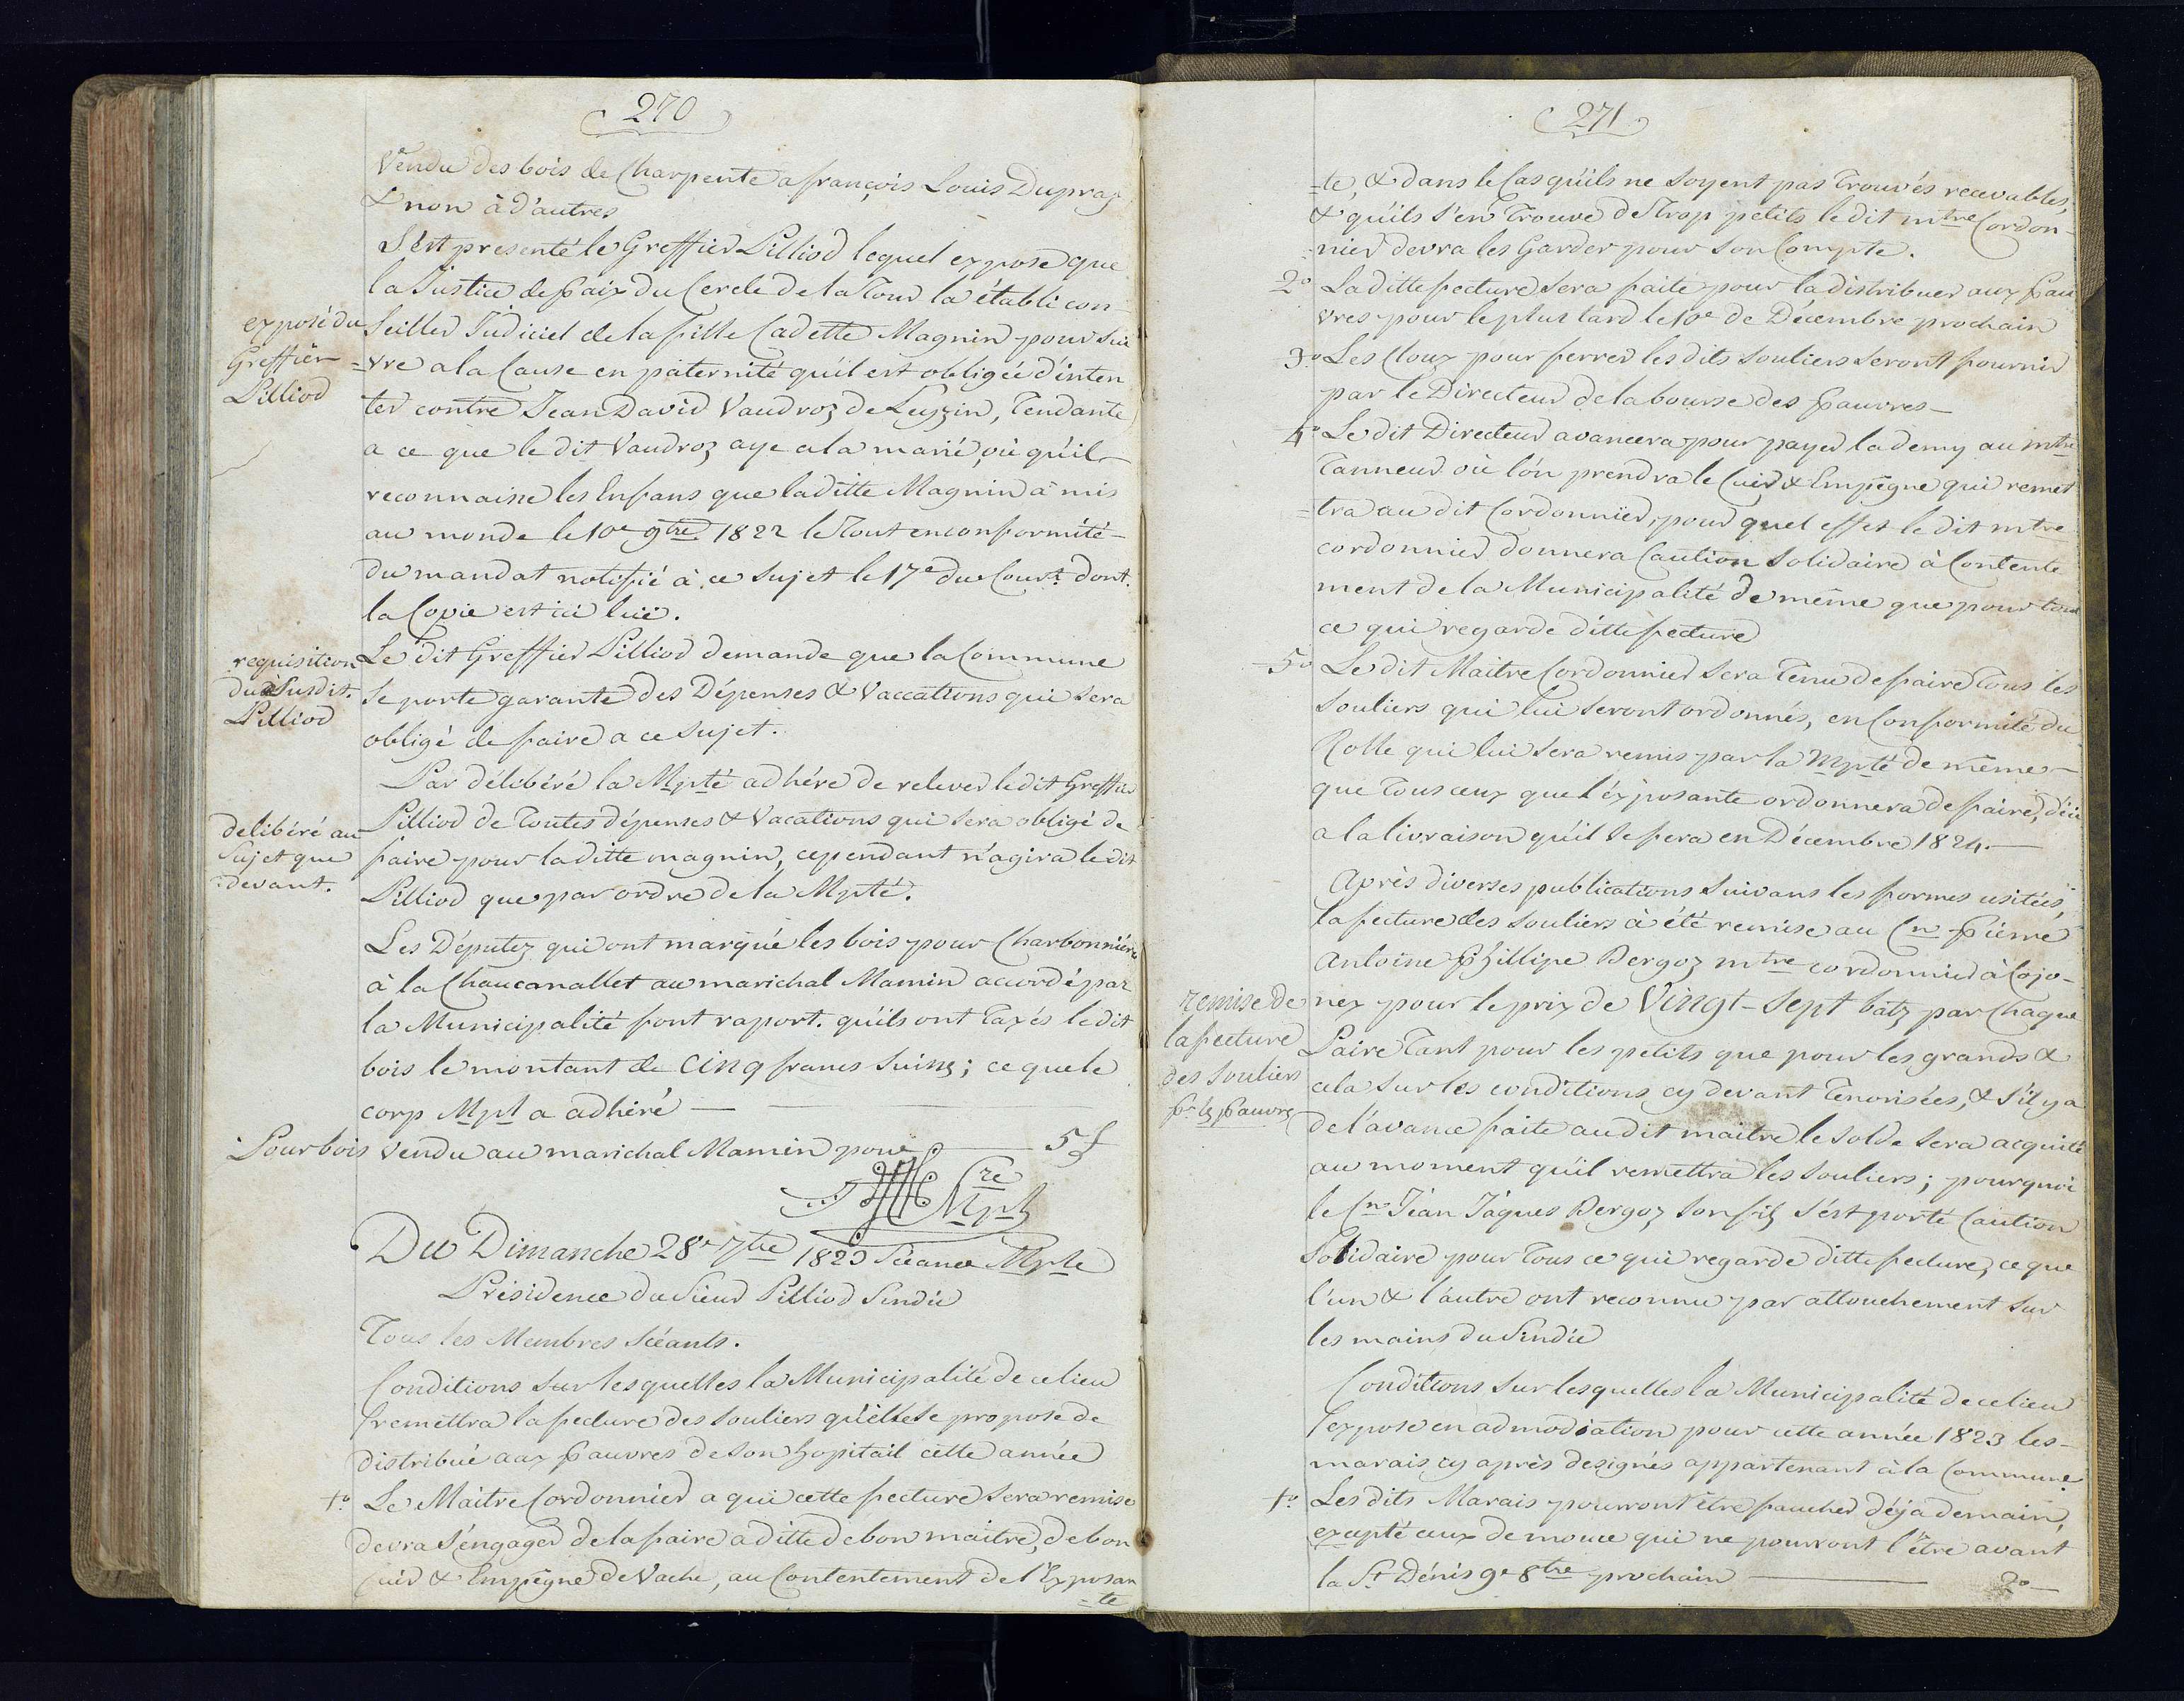 270
Vendu des bois de Charpente a françois Louis Dupraz
& non à d'autres
S'ést presenté le Greffier Pilliod lequel expose que
la Justice de paix du Cercle de la Tour la établi con-
exposé du
Greffier
Pilliod
seiller Judiciel de la fille Cadette Magnin pour sui
=vre a la Cause en paternité qu'il est obligéé d'inten
ter contre Jean David Vaudroz de Leyzin, Tendante
a ce que le dit Vaudroz aye a la marié, où qu'il
reconnaisse les Enfans que laditte Magnin à mis
au monde le 10e 9bre 1822 le Tout en conformité
du mandat notifié à ce sujet le 17e du Court. dont
la Copie est ici luë.
requisition
du Susdit.
Pilliod
Le dit Greffier Pilliod demande que la Commune
se porte garante des Dépenses & Vaccations qui sera
obligé de faire a ce sujet.
Par délibéré la Mpté adhére de relever le dit Greffier
delibéré au
sujet que
devant.
Pilliod de toutes dépenses & Vacations qui sera obligé de
faire pour laditte magnin, cependant n'agira le dit
Pilliod que par ordre de la Mpté.
Les Députez qui ont marqué les bois pour Charbonniére
à la Chaucanallet au marichal Mamin accordé par
la Municipalité font raport. qu'ils ont Taxés le dit
bois le montant de Cinq francs Suiss; ce que le
corp Mpl a adhéré —
Pour bois vendu au marichal Mamin pour — 5 f
Sre Mpl
Du Dimanche 28e 7bre 1823 Séance Mple
Présidence du Sieur Pilliod Sindic
Tous les Membres Scéants.
Conditions sur lesquelles la Municipalité de ce lieu
remettra la fecture des souliers qu'elle se propose de
distribué aux pauvres de son hopitail cette année
1o. Le Maitre Cordonnier a qui cette fecture sera remise
devra s'éngager de la faire a ditte de bon maitre, de bon
Cuir & Empeigne de Vache, au Contentement de l'Exposan
=te
271
=te, & dans le Cas qu'ils ne soyent pas Trouvés recevables,
& qu'ils s'en Trouve de Trop petits le dit mtre Cordon-
=nier devra les Garder pour son Compte.
2o Laditte fecture sera faite pour la distribuer aux pau
vres pour le plus tard le 10e de Décembre prochain
3o Les Cloux pour ferrer les dits souliers seront fournir
par le Directeur de la bourse des pauvres —
4o Le dit Directeur avancera pour payer la demy au mtre
Tanneur où l'on prendra le Cuir & Empeigne qui remet
=tra au dit Cordonnier, pour quel effet le dit mtre
cordonnier donnera Caution Solidaire à Contente
ment de la Municipalité de même que pour tout
ce qui regarde ditte fecture
5o Le dit Maitre Cordonnier sera Tenu de faire Tous les
souliers qui lui seront ordonnés, en Conformité du
Rolle qui lui sera remis par la Mpté de même
que Tous ceux que l'éxposante ordonnera de faire, d'ici
a la livraison qu'il se fera en Décembre 1824. —
Après diverses publications suivans les formes usitées,
la fecture des souliers à été remise au Cn Pierre
Antoine Phillipe Dergoz mtre cordonnier à Cojo-
remise de
la fecture
des souliers
pr. les pauvres
nex pour le prix de Vingt-Sept batz par Chaque
Paire Tant pour les petits que pour les grands &
cela sur les conditions cy devant Tenorisées, & s'il y a
de l'avance faite audit maitre le solde sera acquitté
au moment qu'il remettra les souliers; pourquoi
le Cn Jéan Jaques Dergoz son fils s'ést porté Caution
Solidaire pour Tous ce qui regarde ditte fecture, ce que
l'un & l'autre ont reconnu par attouchement sur
les mains du Sindic
Conditions sur lesquelles la Municipalité de ce lieu
expose en admodiation pour cette année 1823 les
marais cy après designés appartenant à la Commune.
1o Les dits Marais pourront être faucher déja demain,
excepté ceux de mouce qui ne pourront l'être avant
la St Dénis 9e 8bre prochain — 2o —